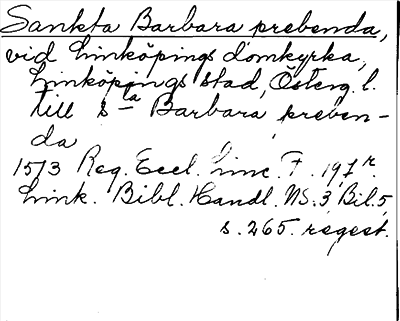 Sankta Barbara prebenda,
vid Linköpings domkyrka,
Linköpings stad, Österg. l.
till s:ta Barbara preben-
da
1513 Reg. Eccl. Linc. F. 197 r.
Link. Bibl. Handl. NS. 3, Bil. 5,
s. 265. regest.